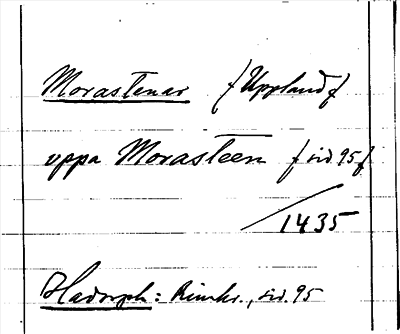 Morastenar /Uppland/
uppa Morasteen /sid 95/
/1435
Hadorph: Rimkr., sid. 95